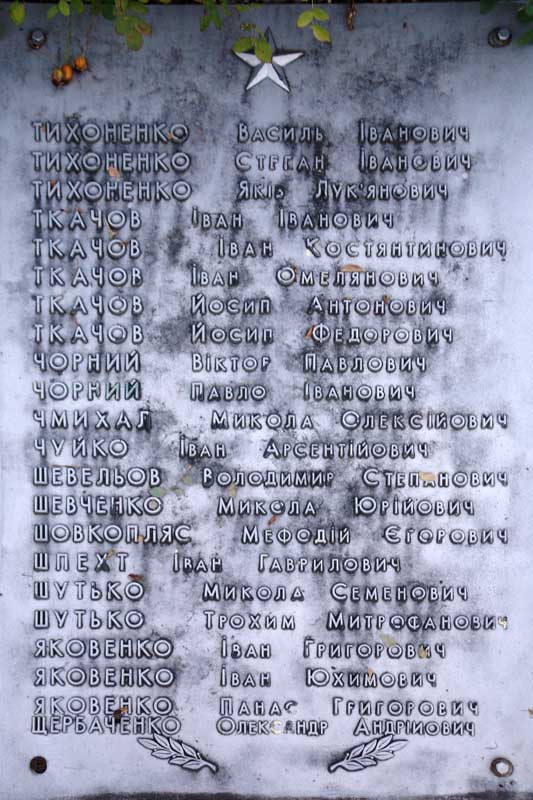 ТИХОНЕНКО ВАСИЛЬ ІВАНОВИЧ
ТИХОНЕНКО СТЕПАН ІВАНОВИЧ
ТИХОНЕНКО ЯКІВ ЛУК'ЯНОВИЧ
ТКАЧОВ ІВАН ІВАНОВИЧ
ТКАЧОВ ІВАН КОСТЯНТИНОВИЧ
ТКАЧОВ ІВАН ОМЕЛЯНОВИЧ
ТКАЧОВ ЙОСИП АНТОНОВИЧ
ТКАЧОВ ЙОСИП ФЕДОРОВИЧ
ЧОРНИЙ ВІКТОР ПАВЛОВИЧ
ЧОРНИЙ ПАВЛО ІВАНОВИЧ
ЧМИХАЛ МИКОЛА ОЛЕКСІЙОВИЧ
ЧУЙКО ІВАН АРСЕНТІЙОВИЧ
ШЕВЕЛЬОВ ВОЛОДИМИР СТЕПАНОВИЧ
ШЕВЧЕНКО МИКОЛА ЮРІЙОВИЧ
ШОВКОПЛЯС МЕФОДІЙ ЄГОРОВИЧ
ШПЕХТ ІВАН ГАВРИЛОВИЧ
ШУТЬКО МИКОЛА СЕМЕНОВИЧ
ШУТЬКО ТРОХИМ МИТРОФАНОВИЧ
ЯКОВЕНКО ІВАН ГРИГОРОВИЧ
ЯКОВЕНКО ІВАН ЮХИМОВИЧ
ЯКОВЕНКО ПАНАС ГРИГОРОВИЧ
ЩЕРБАЧЕНКО ОЛЕКСАНДР АНДРІЙОВИЧ